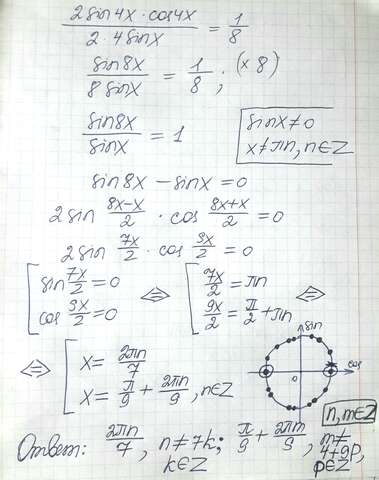 2sin4x · cos4x / 2 · 4sinx = 1/8
sin8x / 8sinx = 1/8 ; (× 8)
sin8x / sinx = 1
sinx ≠ 0
x ≠ πn, n∈Z
sin8x − sinx = 0
2sin (8x−x)/2 · cos (8x+x)/2 = 0
2sin 7x/2 · cos 9x/2 = 0
[ sin 7x/2 = 0 ⇔ [ 7x/2 = πn
cos 9x/2 = 0 9x/2 = π/2 + πn
⇔ [ x = 2πn/7
x = π/9 + 2πn/9, n∈Z
sin
cos
0
n, m∈Z
Ответ: 2πn/7, n≠7k; π/9 + 2πm/9, m≠
k∈Z 4+9p,
p∈Z